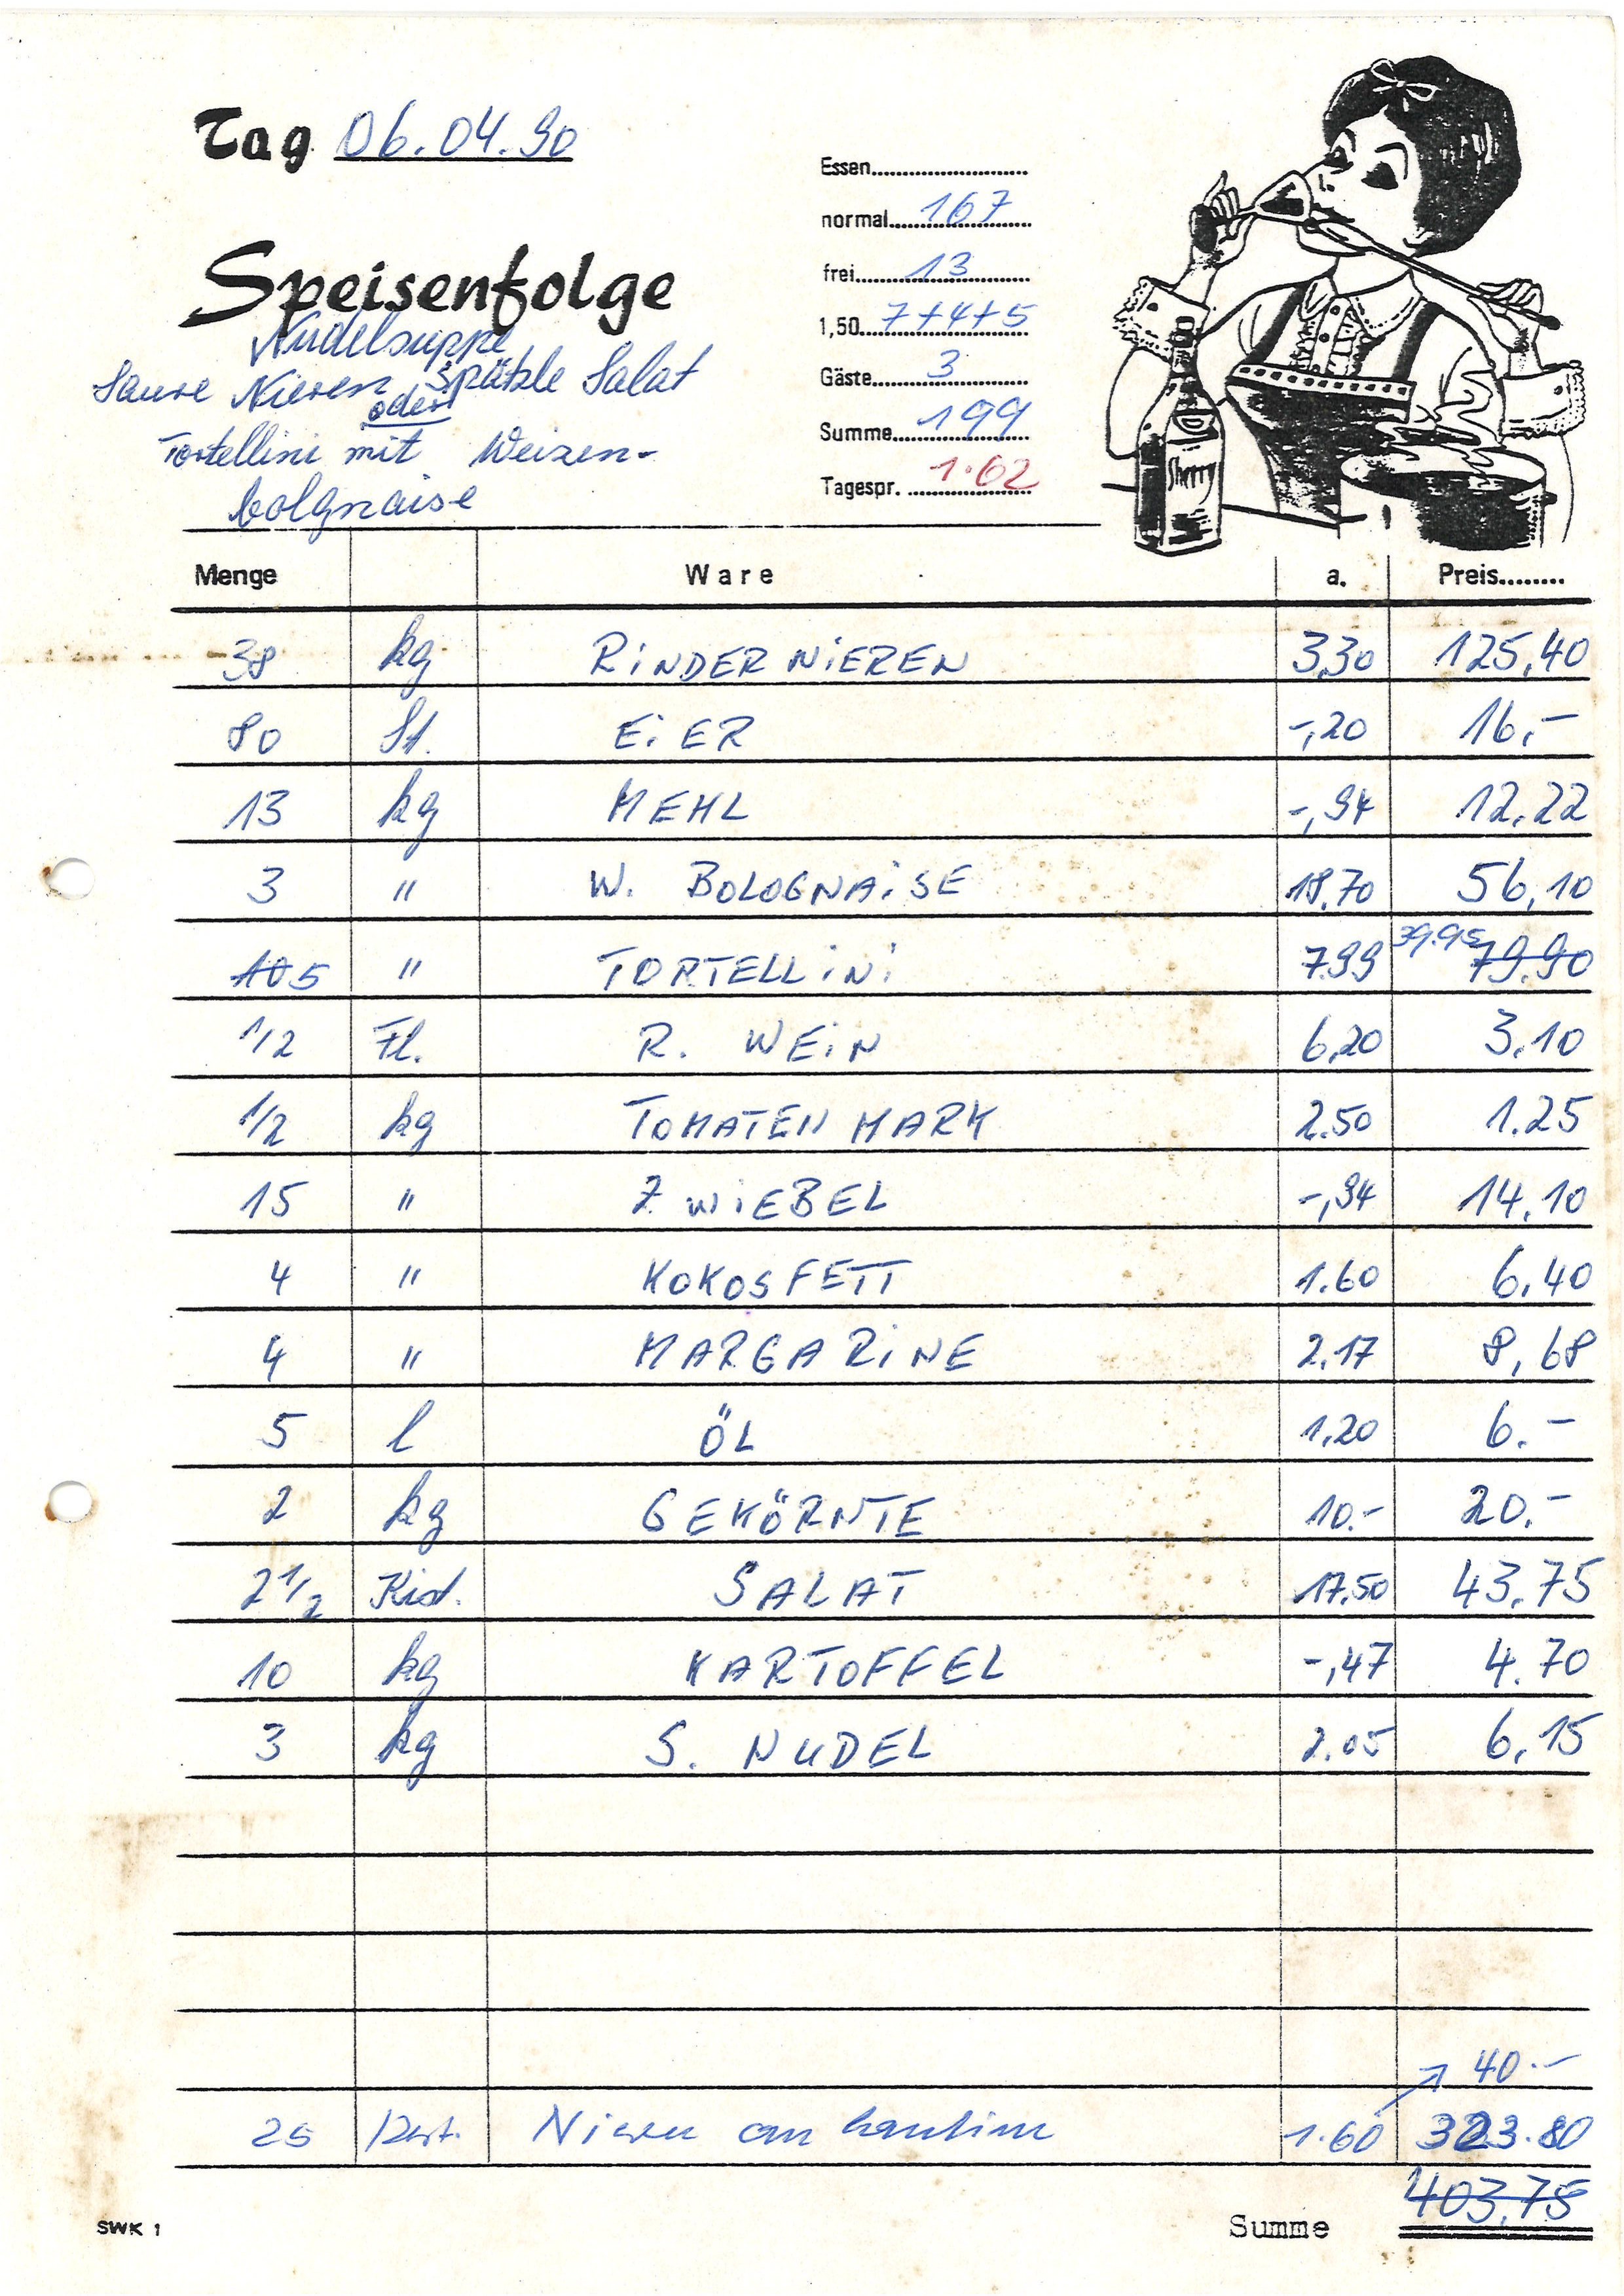 Tag 06.04.90
Essen..........................
normal....167....
frei....13....
1,50....7+4+5
Gäste....3....
Summe....199....
Tagespr. ....1.62....
Speisenfolge
Nudelsuppe
Saure Nieren Spätzle Salat
oder
Tortellini mit Weizen-
bolgnaise
Sherry
Menge Ware a. Preis........
38 kg RiNDERNiEREN 3,30 125,40
80 St. EiER -,20 16,-
13 kg MEHL -,94 12,22
3 " W. BOLOGNAiSE 18,70 56,10
10 5 " TORTELLiNi 7.99 39.95 79.90
1/2 Fl. R. WEiN 6,20 3,10
1/2 kg TOMATENMARK 2.50 1.25
15 " ZWiEBEL -,94 14,10
4 " KOKOSFETT 1.60 6,40
4 " MARGARiNE 2.17 8,68
5 l ÖL 1,20 6.-
2 kg GEKÖRNTE 10.- 20.-
2 1/2 Kist. SALAT 17.50 43.75
10 kg KARTOFFEL -,47 4.70
3 kg S. NUDEL 2.05 6,15
40.-
25 Nieren an 1.60 323.80
Summe 403,75
SWK 1